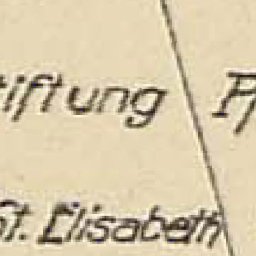 tiftung Pf
St. Elisabeth